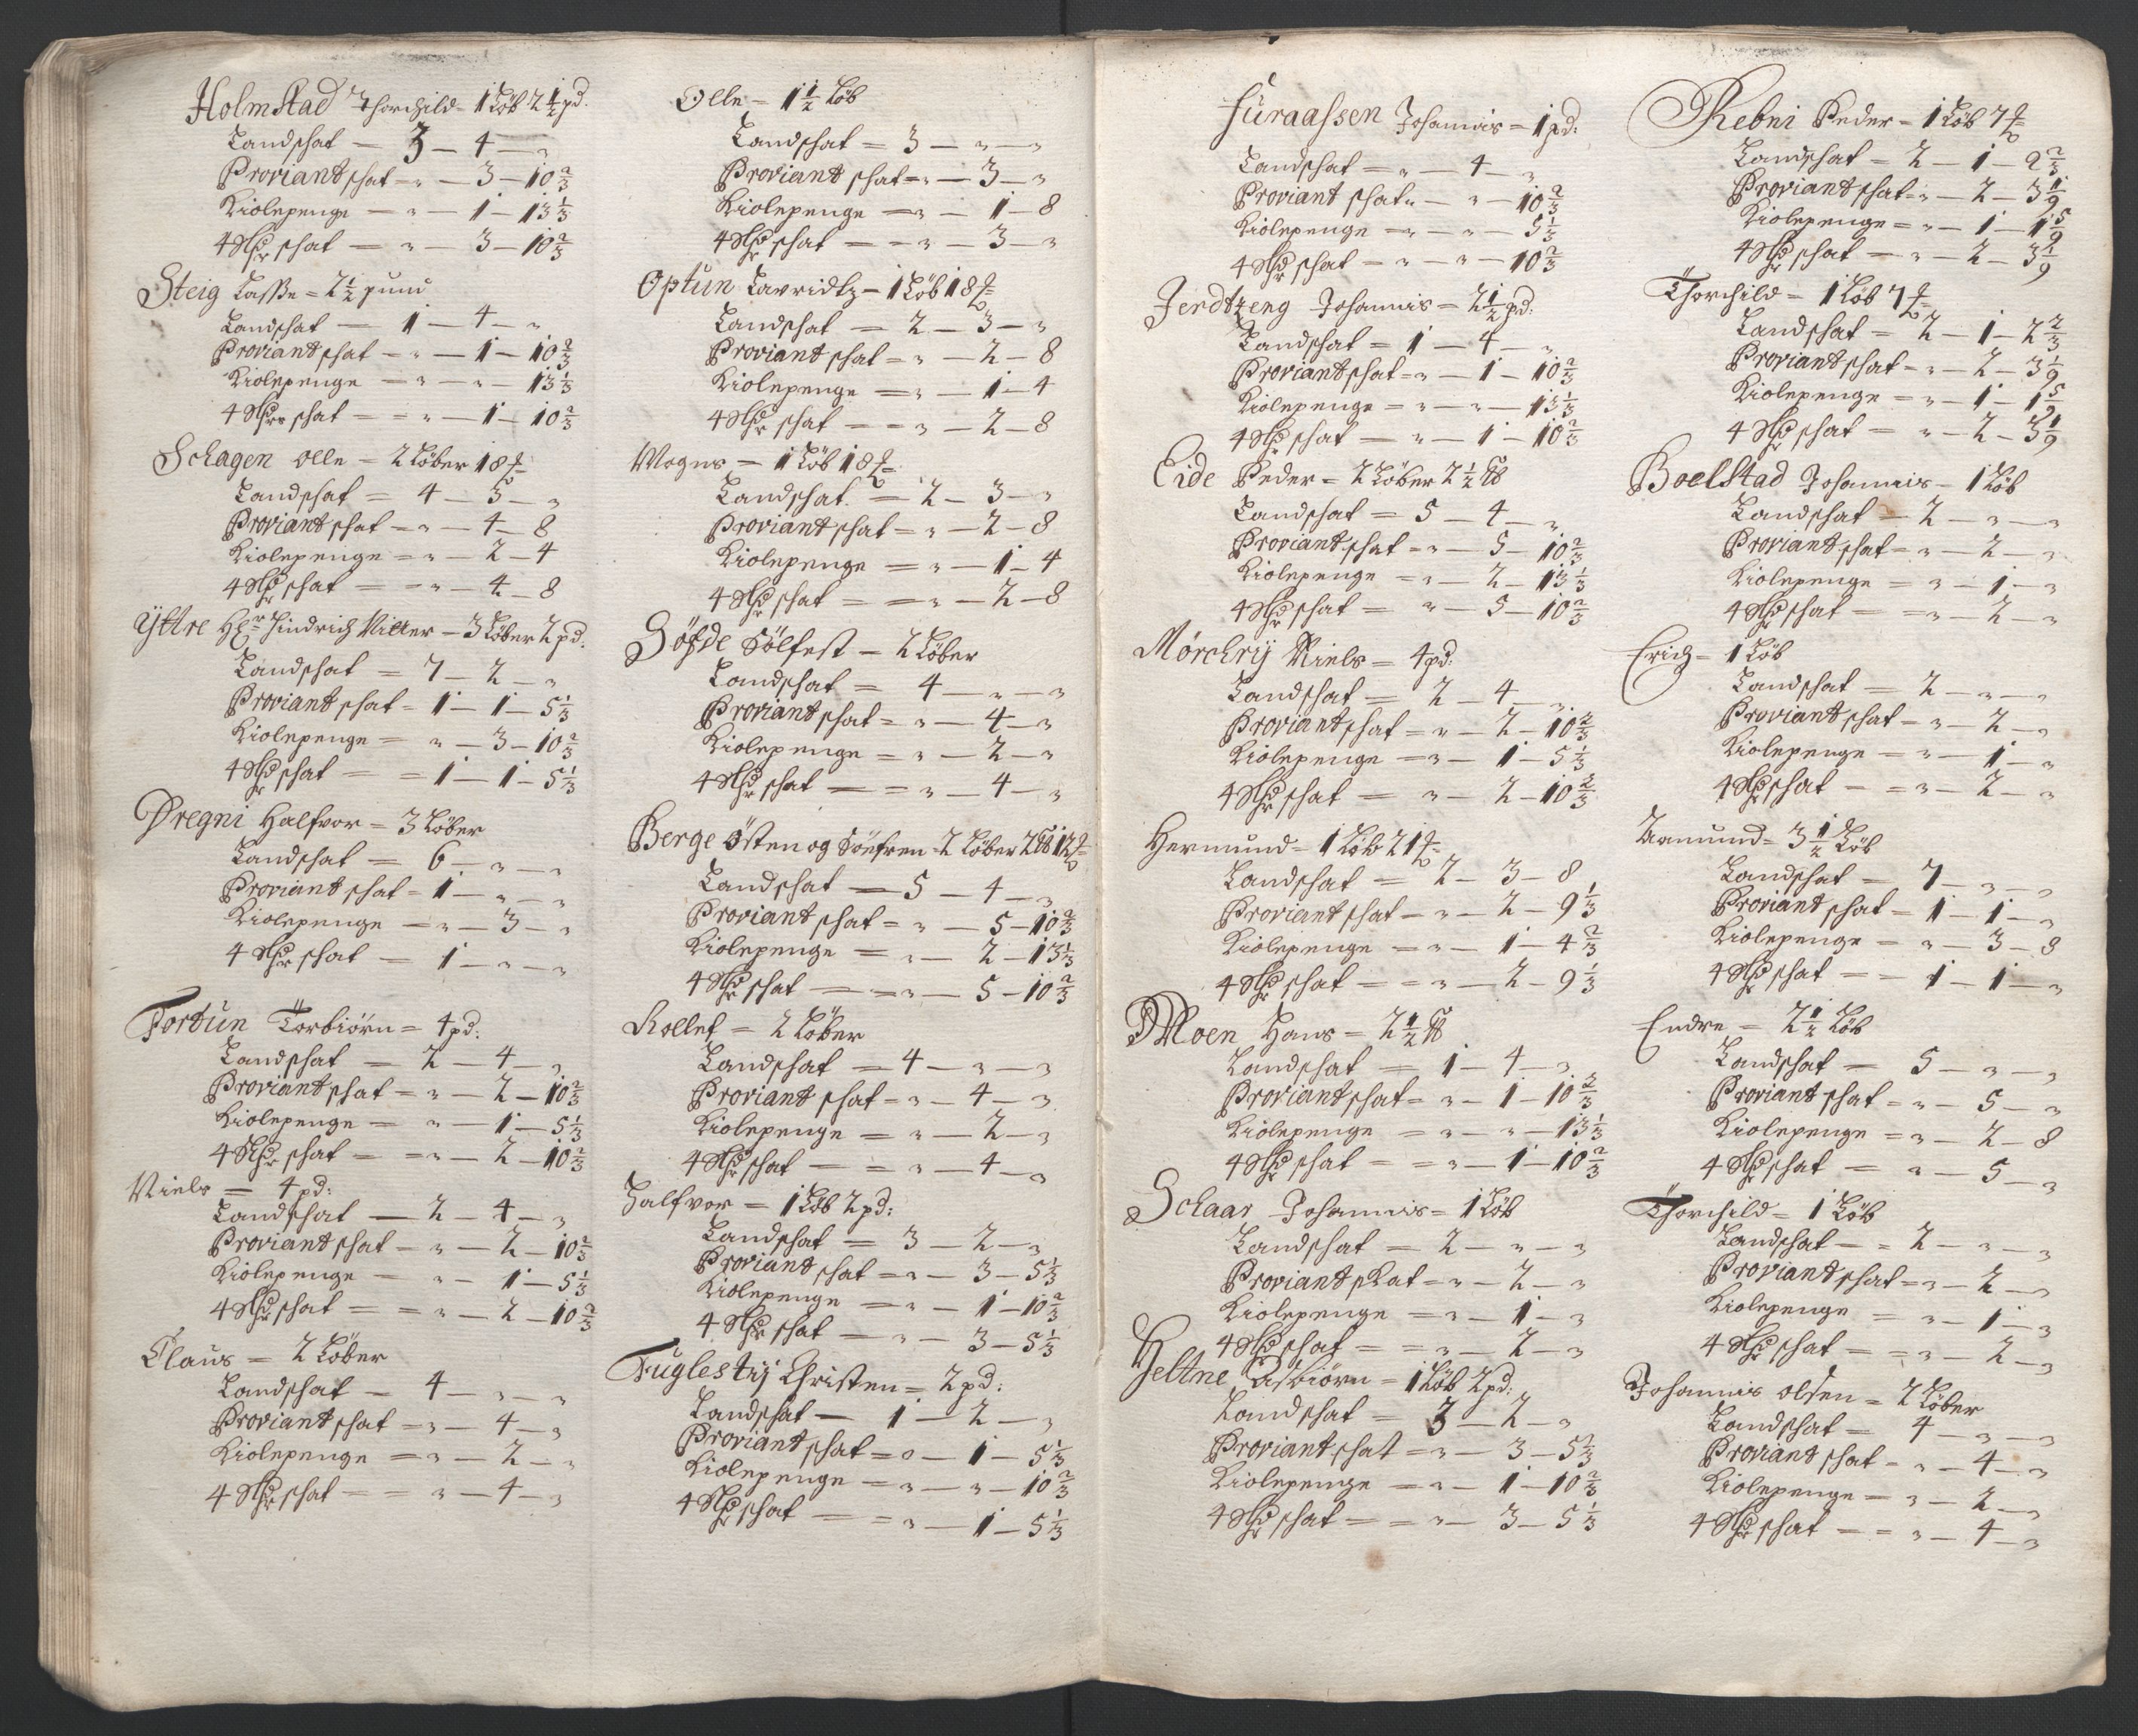 Holmstad Thorchild = 1 Løb 2 1/2 pd.
Landschat = 3 – 4 – „
Proviant schat = „ – 3 – 10 2/3
Kiolepenge = „ – 1 – 13 1/3
4 Schr schat = „ – 3 – 10 2/3
Steig Lasse = 2 1/2 pund
Landschat = 1 – 4 – „
Proviant schat = „ – 1 – 10 2/3
Kiolepenge = „ – „ – 13 1/3
4 Schr schat = „ – 1 – 10 2/3
Schagen olle = 2 Løber 18 ℔
Landschat = 4 – 3 – „
Proviant schat = „ – 4 – 8
Kiolepenge = „ – 2 – 4
4 Schr schat = „ – 4 – 8
Yttre Hr Hindrich Miller – 3 Løber 2 pd.
Landschat = 7 – 2 – „
Proviant schat = 1 – 1 – 5 1/3
Kiolepenge = „ – 3 – 10 2/3
4 Schr schat = 1 – 1 – 5 1/3
Dregni Halfvor = 3 Løber
Landschat = 6 – „ – „
Proviant schat = 1 – „ – „
Kiolepenge = „ – 3 – „
4 Schr schat = 1 – „ – „
Fortun Torbiörn = 4 pd:
Landschat = 2 – 4 – „
Proviant schat = „ – 2 – 10 2/3
Kiolepenge = „ – 1 – 5 1/3
4 Schr schat = „ – 2 – 10 2/3
Niels = 4 pd:
Landschat – 2 – 4 – „
Proviant schat = „ – 2 – 10 2/3
Kiolepenge = „ – 1 – 5 1/3
4 Schr schat = „ – 2 – 10 2/3
Claus = 2 Løber
Landschat = 4 – „ – „
Proviant schat = „ – 4 – „
Kiolepenge = „ – 2 – „
4 Schr schat = „ – 4 – „
Olle = 1 1/2 Løb
Landschat = 3 – „ – „
Proviant schat = „ – 3 – „
Kiolepenge = „ – 1 – 8
4 Schr schat = „ – 3 – „
Optun Lavridtz – 1 Løb 18 ℔
Landschat = 2 – 3 – „
Proviant schat = „ – 2 – 8
Kiolepenge = „ – 1 – 4
4 Schr schat = „ – 2 – 8
Mogns – 1 Løb 18 ℔
Landschat = 2 – 3 – „
Proviant schat = „ – 2 – 8
Kiolepenge = „ – 1 – 4
4 Schr schat = „ – 2 – 8
Söfde Sölfest – 2 Løber
Landschat = 4 – „ – „
Proviant schat = „ – 4 – „
Kiolepenge = „ – 2 – „
4 Schr schat = „ – 4 – „
Berge östen og Söfren = 2 Løber 2 ℔ 12 ℔
Landschat = 5 – 4 – „
Proviant schat = „ – 5 – 10 2/3
Kiolepenge = „ – 2 – 13 1/3
4 Schr schat = „ – 5 – 10 2/3
Rollef = 2 Løber
Landschat = 4 – „ – „
Proviant schat = „ – 4 – „
Kiolepenge = „ – 2 – „
4 Schr schat = „ – 4 – „
Halfvor = 1 Løb 2 pd:
Landschat = 3 – 2 – „
Proviant schat = „ – 3 – 5 1/3
Kiolepenge = „ – 1 – 10 2/3
4 Schr schat = „ – 3 – 5 1/3
Fuglestij Christen = 2 pd:
Landschat – 1 – 2 – „
Proviant schat = „ – 1 – 5 1/3
Kiolepenge = „ – „ – 10 2/3
4 Schr schat = „ – 1 – 5 1/3
Furaassen Johannis = 1 pd:
Landschat = „ – 4 – „
Proviant schat „ – „ – 10 2/3
Kiolepenge = „ – „ – 5 1/3
4 Schr schat = „ – „ – 10 2/3
Jerdtzeng Johannis = 2 1/2 pd:
Landschat = 1 – 4 – „
Proviant schat = „ – 1 – 10 2/3
Kiolepenge = „ – „ – 13 1/3
4 Schr schat = „ – 1 – 10 2/3
Eide Peder = 2 Løber 2 1/2 ℔
Landschat = 5 – 4 – „
Proviant schat = „ – 5 – 10 2/3
Kiolepenge = „ – 2 – 13 1/3
4 Schr schat = „ – 5 – 10 2/3
Mörchrij Niels = 4 pd:
Landschat = 2 – 4 – „
Proviant schat = „ – 2 – 10 2/3
Kiolepenge = „ – 1 – 5 1/3
4 Schr schat = „ – 2 – 10 2/3
Hermund = 1 Løb 21 ℔
Landschat = 2 – 3 – 8
Proviant schat = „ – 2 – 9 1/3
Kiolepenge = „ – 1 – 4 2/3
4 Schr schat = „ – 2 – 9 1/3
Moen Hans = 2 1/2 ℔
Landschat = 1 – 4 – „
Proviant schat = „ – 1 – 10 2/3
Kiolepenge = „ – „ – 13 1/3
4 Schr schat = „ – 1 – 10 2/3
Schaar Johannis = 1 Løb
Landschat = 2 – „ – „
Proviant skat = „ – 2 – „
Kiolepenge = „ – 1 – „
4 Schr schat = „ – 2 – „
Heltne Asbiörn = 1 Løb 2 pd:
Landschat = 3 – 2 – „
Proviant schat = „ – 3 – 5 1/3
Kiolepenge = „ – 1 – 10 2/3
4 Schr schat = „ – 3 – 5 1/3
Rebni Peder = 1 Løb 7 ℔
Landschat = 2 – 1 – 2 2/3
Proviant schat = „ – 2 – 3 1/9
Kiolepenge = „ – 1 – 1 5/9
4 Schr schat = „ – 2 – 3 1/9
Thorchild = 1 Løb 7 ℔
Landschat = 2 – 1 – 2 2/3
Proviant schat = „ – 2 – 3 1/9
Kiolepenge = „ – 1 – 1 5/9
4 Schr schat = „ – 2 – 3 1/9
Boelstad Johannis – 1 Løb
Landschat – 2 – „ – „
Proviant schat = „ – 2 – „
Kiolepenge = „ – 1 – „
4 Schr schat = „ – 2 – „
Erich = 1 Løb
Landschat = 2 – „ – „
Proviant schat = „ – 2 – „
Kiolepenge = „ – 1 – „
4 Schr schat = „ – 2 – „
Aamund = 3 1/2 Løb
Landschat = 7 – „ – „
Proviant schat = 1 – 1 – „
Kiolepenge = „ – 3 – 8
4 Schr schat = 1 – 1 – „
Endre = 2 1/2 Løb
Landschat = 5 – „ – „
Proviant schat = „ – 5 – „
Kiolepenge = „ – 2 – 8
4 Schr schat = „ – 5 – „
Thorchild = 1 Løb
Landschat = 2 – „ – „
Proviant schat = „ – 2 – „
Kiolepenge = „ – 1 – „
4 Schr schat = „ – 2 – „
Johannis olsen = 2 Løber
Landschat = 4 – „ – „
Proviant schat = „ – 4 – „
Kiolepenge = „ – 2 – „
4 Schr schat = „ – 4 – „